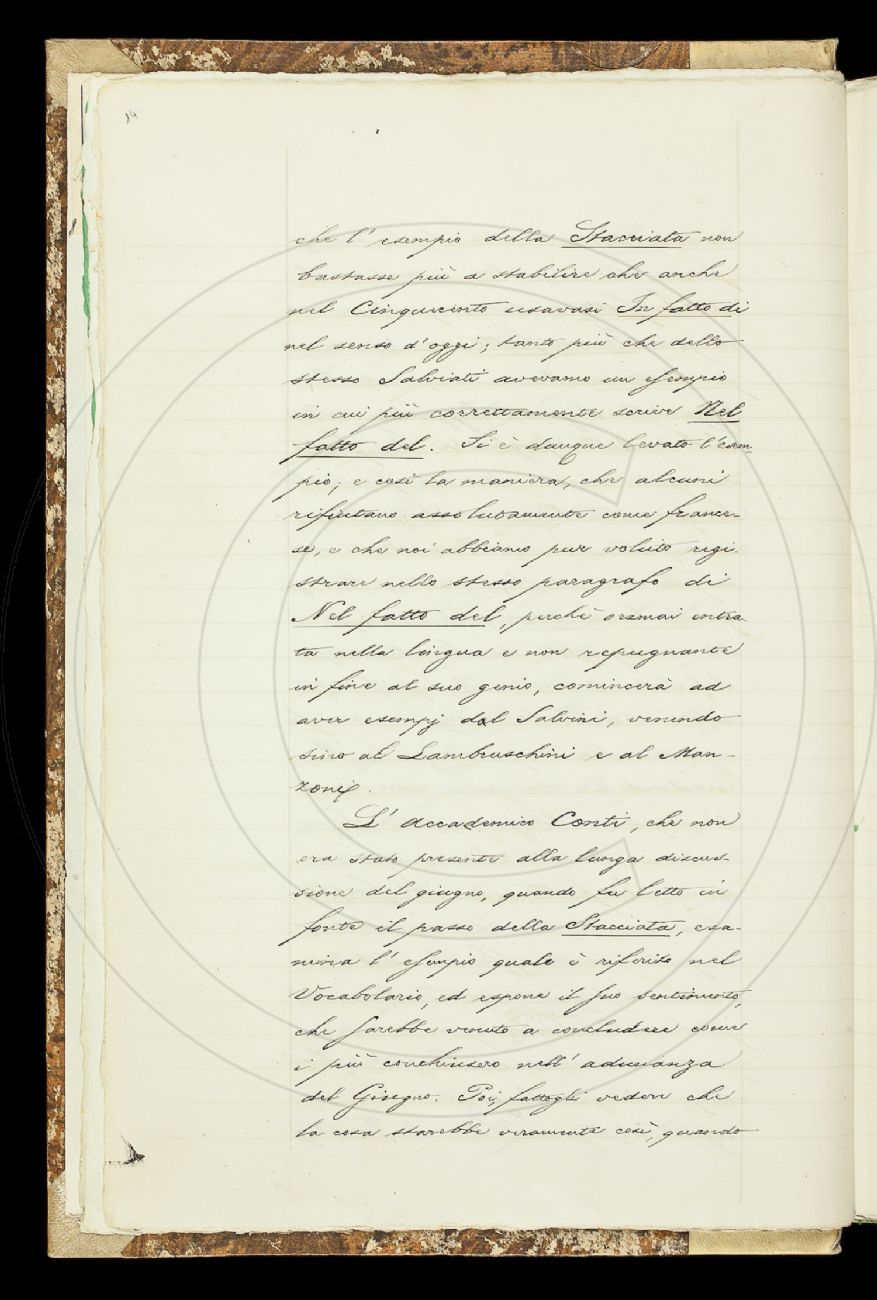 14
che l' esempio della Stacciata non
bastasse più a stabilire che anche
nel Cinquecento usavasi In fatto di
nel senso d'oggi; tanto più che dello
stesso Salviati avevamo un esempio
in cui più correttamente scrive Nel
fatto del. Si è dunque levato l'esem-
pio; e così la maniera, che alcuni
rifiutano assolutamente come france-
se, e che noi abbiamo pur voluto regi-
strare nello stesso paragrafo di
Nel fatto del, perchè oramai entra-
ta nella lingua e non repugnante
in fine al suo genio, comincerà ad
aver esempj dal Salvini, venendo
sino al Lambruschini e al Man-
zoni.
L' Accademico Conti, che non
era stato presente alla lunga discus-
sione del giugno, quando fu letto in
fonte il passo della Stacciata, esa-
mina l' esempio quale è riferito nel
Vocabolario, ed espone il suo sentimento,
che sarebbe venuto a concludere come
i più conchiusero nell' adunanza
del Giugno. Poi, fattogli vedere che
la cosa starebbe veramente così, quando